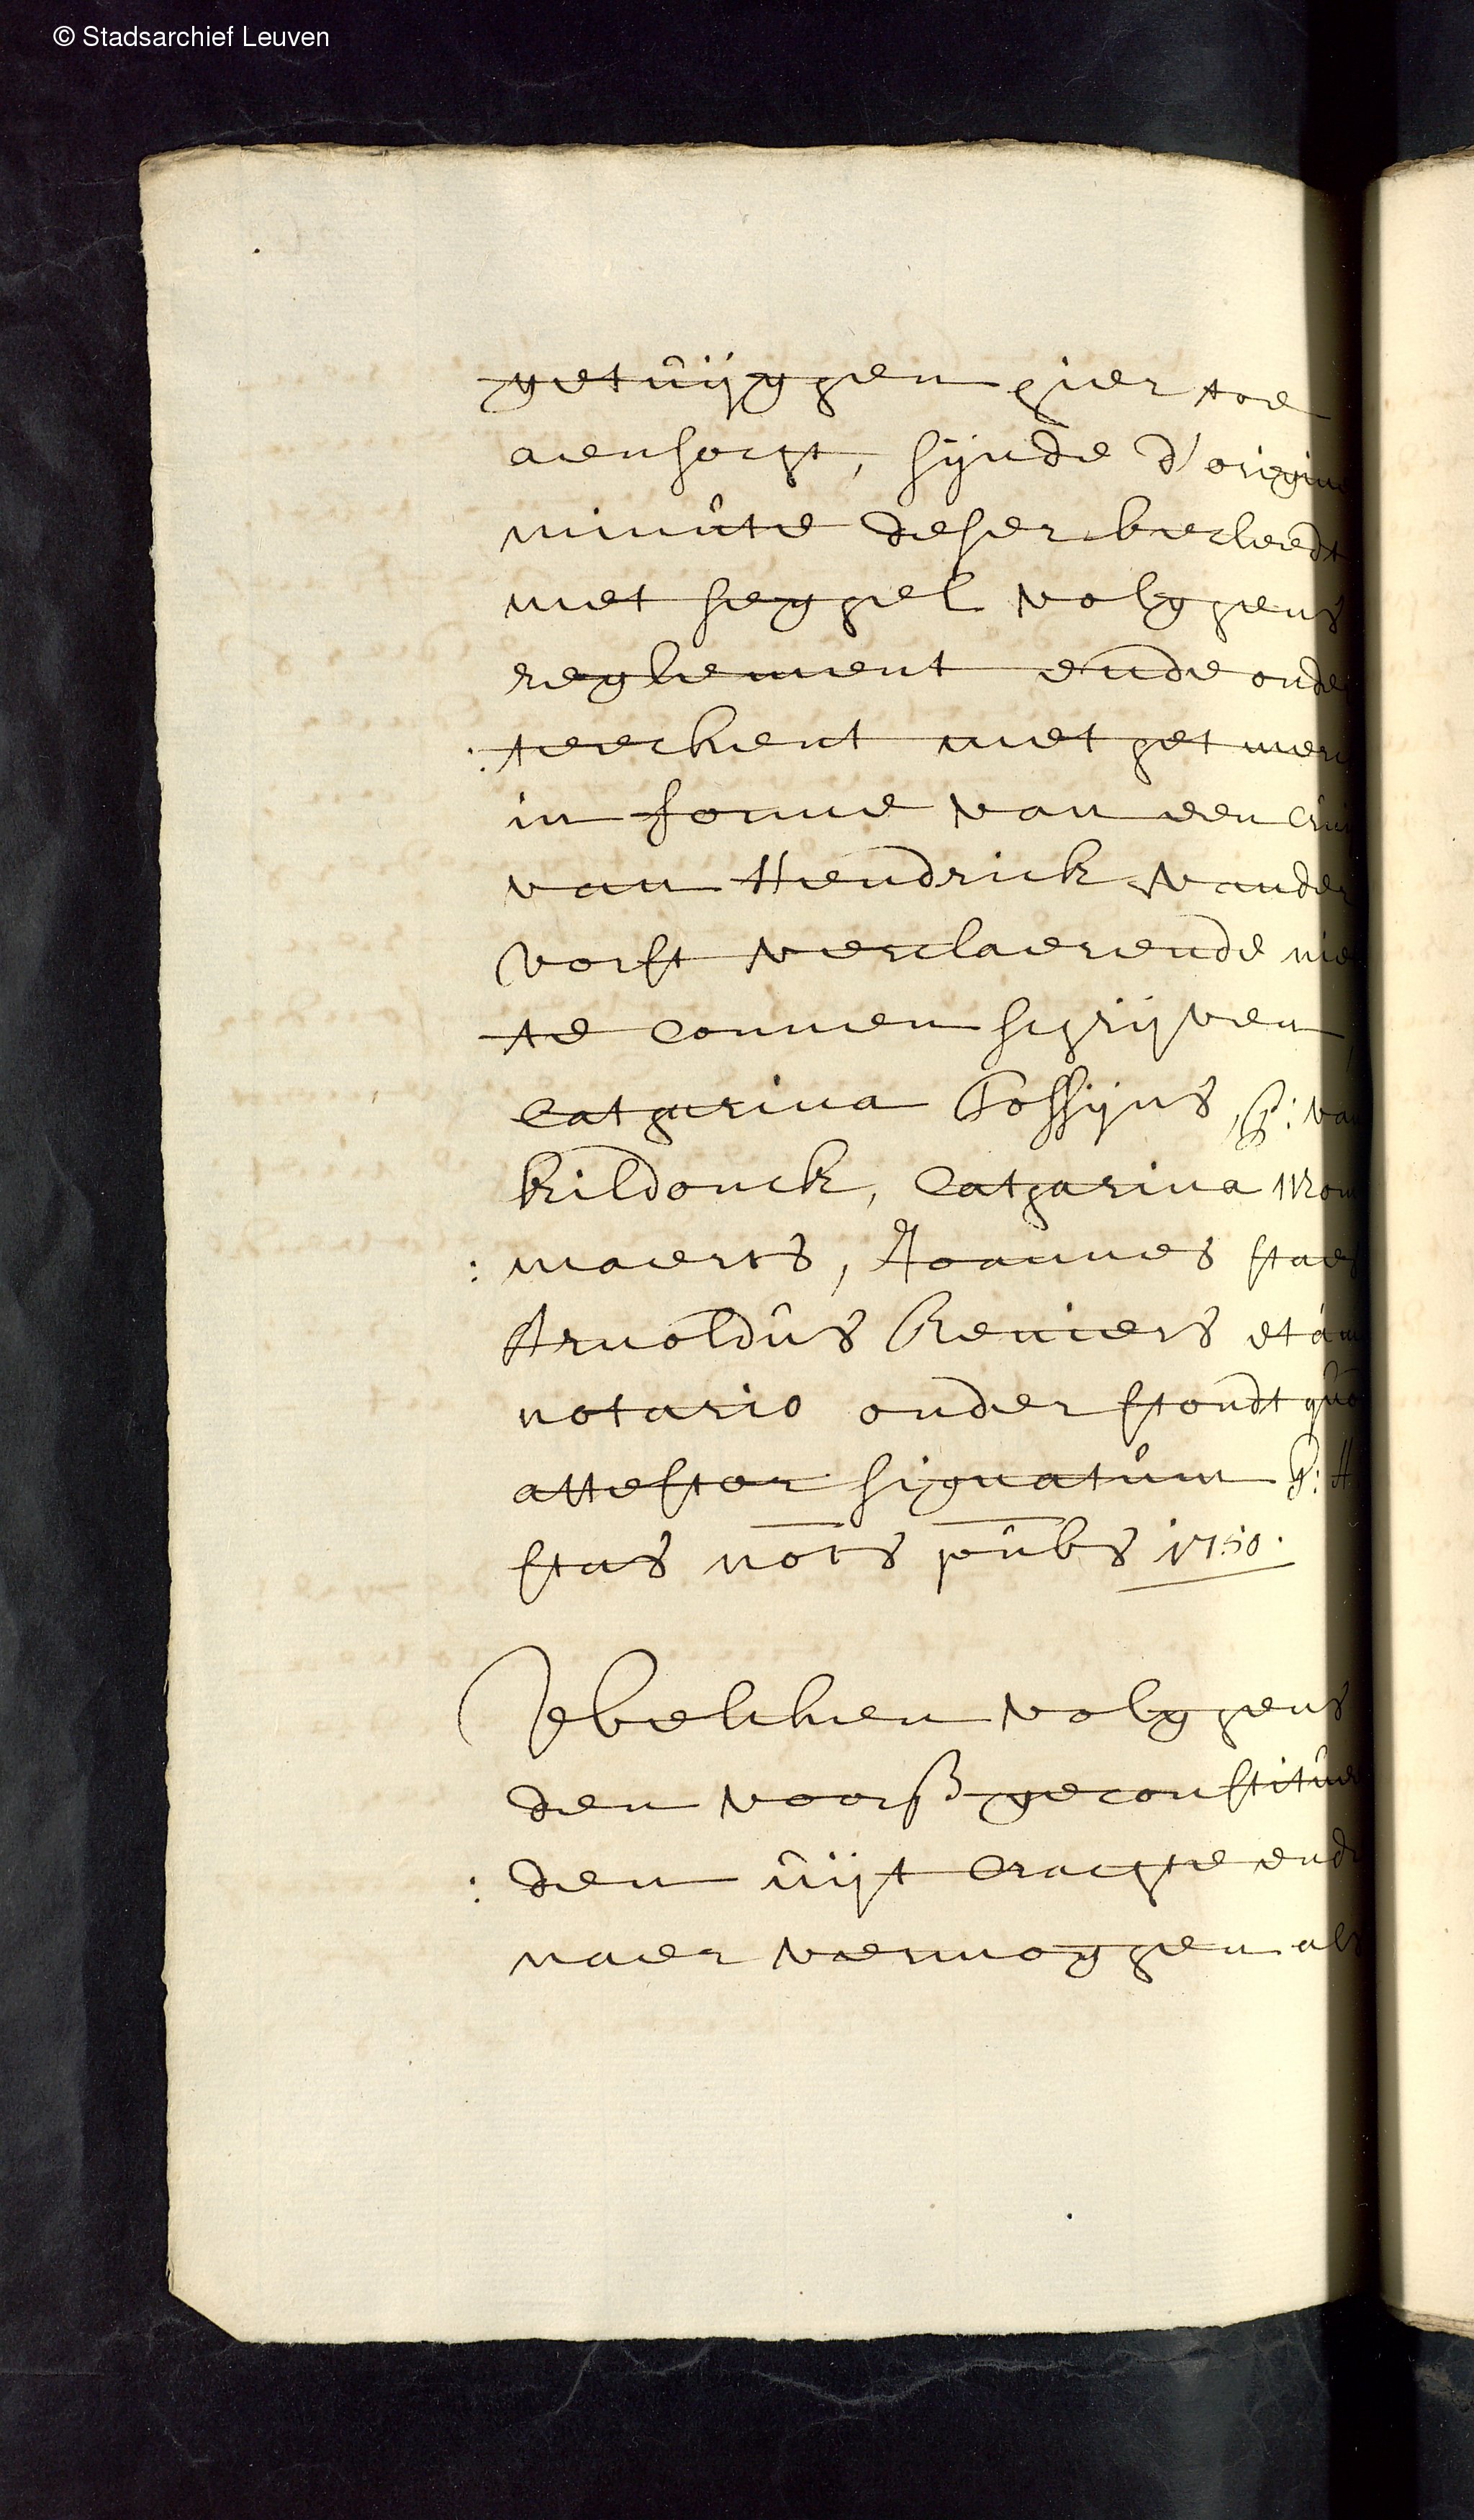 © Stadsarchief Leuven
getuijghen hier toe
aensocht, sijnde d'origin
minute deser becleedt
met seghel volghens
reglement ende onde
: teeckent met het mer
in forme van een crui
van Hendrick vander
vorst verclaerende nie
te connen schrijven,
Catharina Tossijns, P: va
kildonck, Catharina Mom
: maerts, Joannes staes
Arnoldus Reniers et
notario onderstondt quo
attestor signatum P: H
stas nots pubs 1750.
Welcken volghens
den voors geconstitue
: den uijt crachte ende
naer vermoghen als